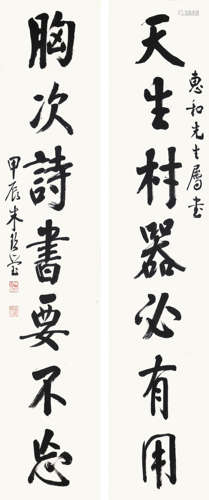 天生材器必有用
惠和先生屬書
胸次詩書要不忘
甲辰朱